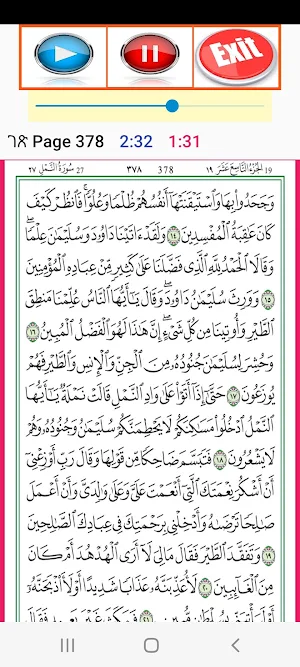 Exit
ገጽ Page 378 2:32 1:31
٢٧ سُورَةُ النَّمْل 27 ٣٧٨ 378 الجُزْءُ التَّاسِعَ عَشَرَ ١٩ 19
وَجَحَدُوا۟ بِهَا وَٱسْتَيْقَنَتْهَآ أَنفُسُهُمْ ظُلْمًا وَعُلُوًّا ۚ فَٱنظُرْ كَيْفَ
كَانَ عَٰقِبَةُ ٱلْمُفْسِدِينَ ١٤ وَلَقَدْ ءَاتَيْنَا دَاوُۥدَ وَسُلَيْمَٰنَ عِلْمًا ۖ
وَقَالَا ٱلْحَمْدُ لِلَّهِ ٱلَّذِى فَضَّلَنَا عَلَىٰ كَثِيرٍ مِّنْ عِبَادِهِ ٱلْمُؤْمِنِينَ
١٥ وَوَرِثَ سُلَيْمَٰنُ دَاوُۥدَ ۖ وَقَالَ يَٰٓأَيُّهَا ٱلنَّاسُ عُلِّمْنَا مَنطِقَ
ٱلطَّيْرِ وَأُوتِينَا مِن كُلِّ شَىْءٍ ۖ إِنَّ هَٰذَا لَهُوَ ٱلْفَضْلُ ٱلْمُبِينُ ١٦
وَحُشِرَ لِسُلَيْمَٰنَ جُنُودُهُۥ مِنَ ٱلْجِنِّ وَٱلْإِنسِ وَٱلطَّيْرِ فَهُمْ
يُوزَعُونَ ١٧ حَتَّىٰٓ إِذَآ أَتَوْا۟ عَلَىٰ وَادِ ٱلنَّمْلِ قَالَتْ نَمْلَةٌ يَٰٓأَيُّهَا
ٱلنَّمْلُ ٱدْخُلُوا۟ مَسَٰكِنَكُمْ لَا يَحْطِمَنَّكُمْ سُلَيْمَٰنُ وَجُنُودُهُۥ وَهُمْ
لَا يَشْعُرُونَ ١٨ فَتَبَسَّمَ ضَاحِكًا مِّن قَوْلِهَا وَقَالَ رَبِّ أَوْزِعْنِىٓ
أَنْ أَشْكُرَ نِعْمَتَكَ ٱلَّتِىٓ أَنْعَمْتَ عَلَىَّ وَعَلَىٰ وَٰلِدَىَّ وَأَنْ أَعْمَلَ
صَٰلِحًا تَرْضَىٰهُ وَأَدْخِلْنِى بِرَحْمَتِكَ فِى عِبَادِكَ ٱلصَّٰلِحِينَ
١٩ وَتَفَقَّدَ ٱلطَّيْرَ فَقَالَ مَالِىَ لَآ أَرَى ٱلْهُدْهُدَ أَمْ كَانَ
مِنَ ٱلْغَآئِبِينَ ٢٠ لَأُعَذِّبَنَّهُۥ عَذَابًا شَدِيدًا أَوْ لَأَا۟ذْبَحَنَّهُۥٓ
أَوْ لَيَأْتِيَنِّى بِسُلْطَٰنٍ مُّبِينٍ ٢١ فَمَكَثَ غَيْرَ بَعِيدٍ فَقَالَ